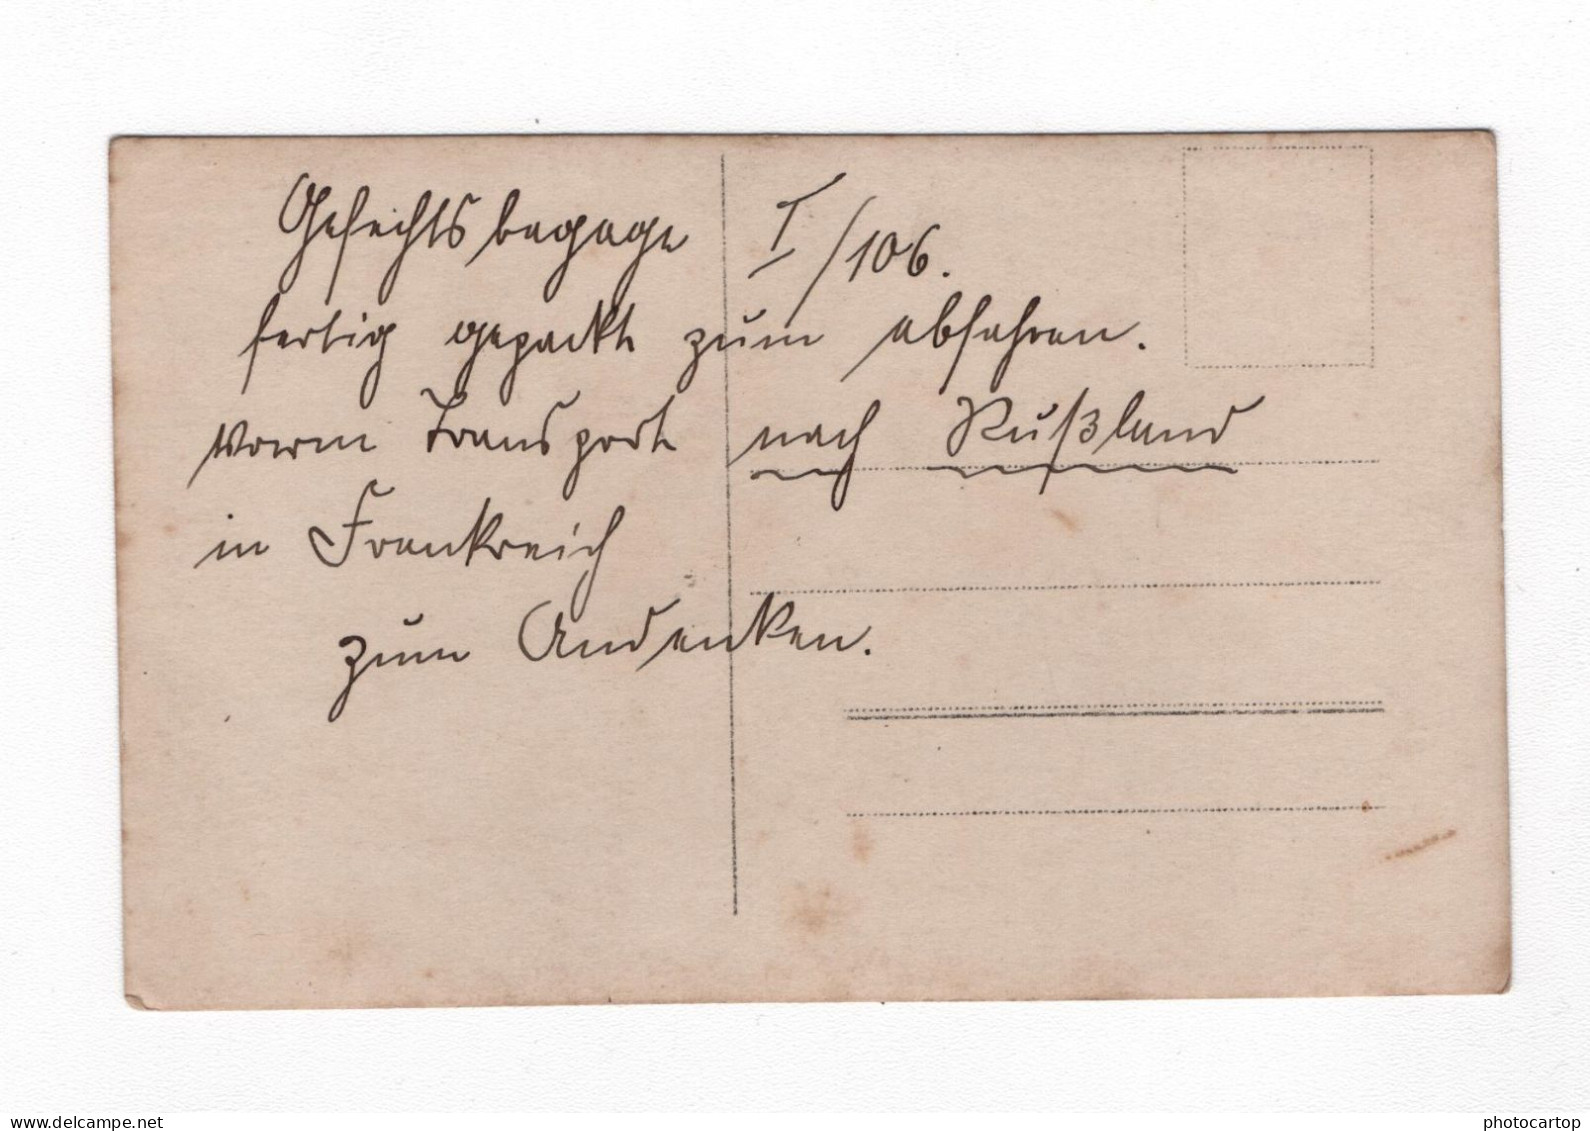 Gefechtsbagage I/106.
fertig gepackt zum abfahren.
vorm Transport nach Rußland
in Frankreich
zum Andenken.
www.delcampe.net
photocartop